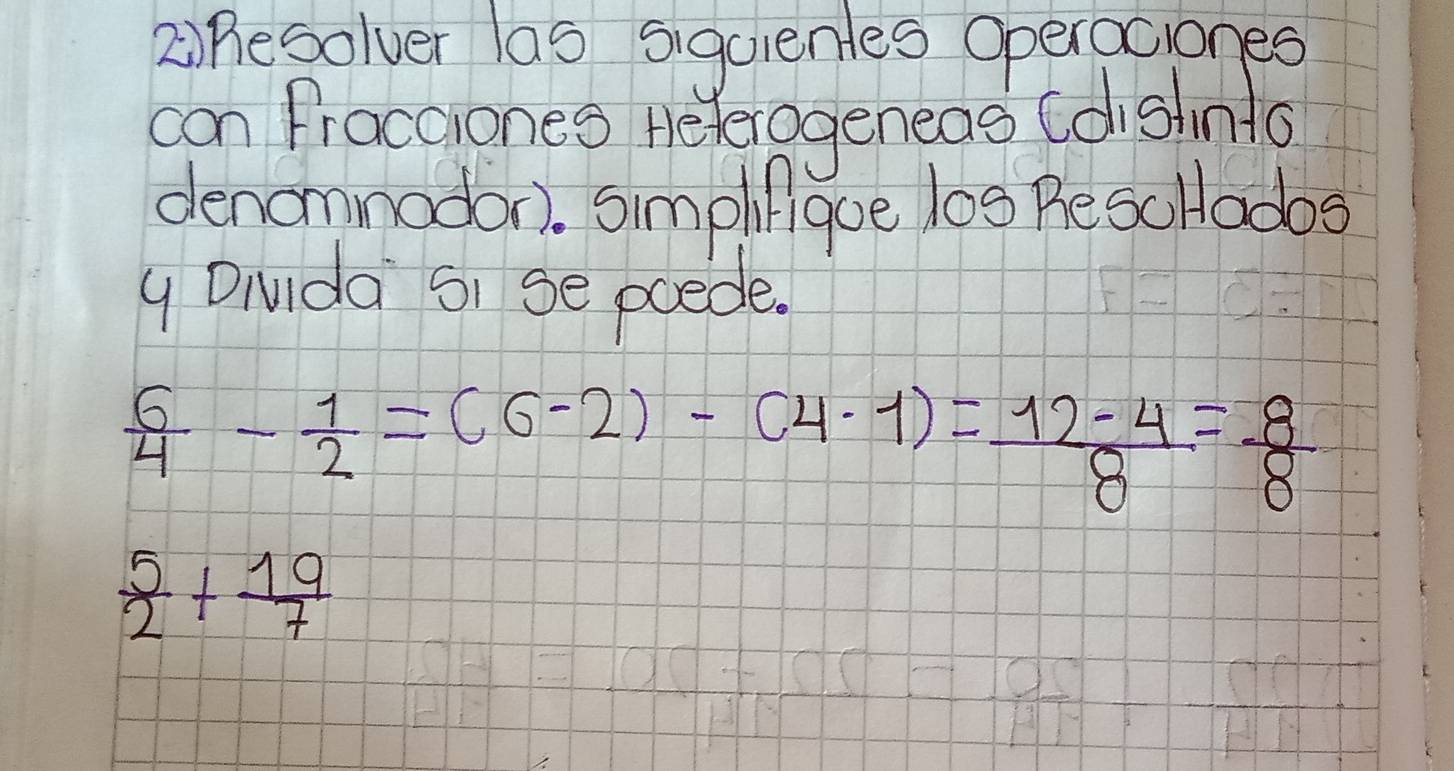 2.) Resolver las siguientes operaciones
con Fracciones Heterogeneas (distinto
denominador). simplifique los Resultados
y Divida si se puede.
6/4 - 1/2 = (6-2) - (4·1) = 12-4/8 = 8/8
5/2 + 19/7